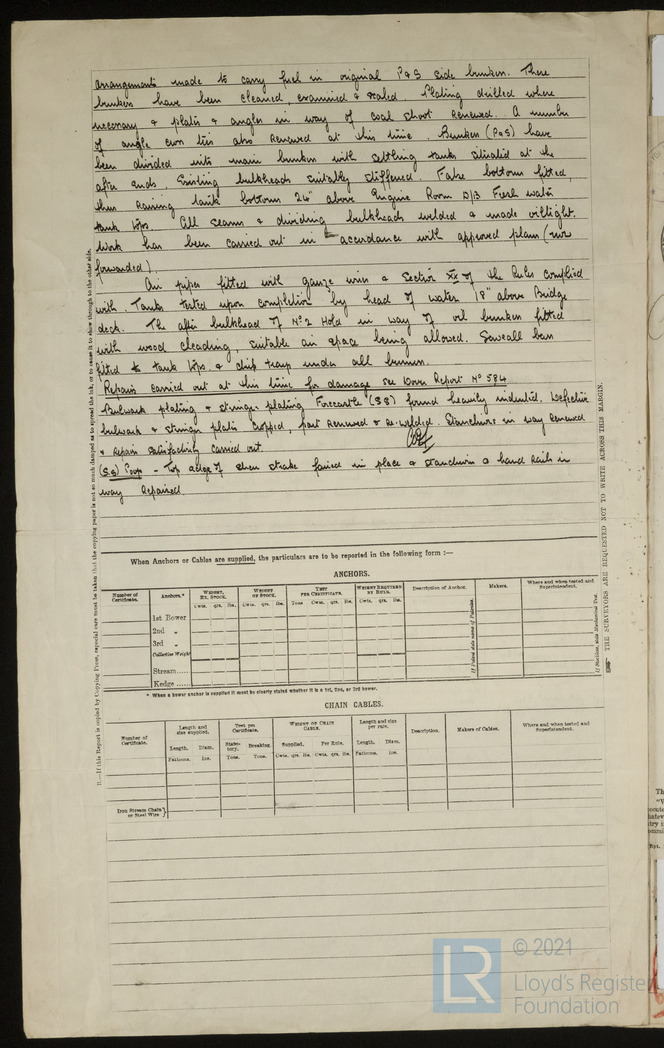 arrangements made to carry fuel in original P&S side bunkers. These
bunkers have been cleaned, examined & scaled. Plating drilled where
necessary & plates & angles in way of coal shoot renewed. A number
of angle iron ties also renewed at this time. Bunkers (P&S) have
been divided into main bunkers with settling tanks situated at the
after ends. Existing bulkheads suitably stiffened. False bottoms fitted,
thus raising tank bottoms 24" above Engine Room D/B Fresh water
tank tops. All seams & dividing bulkheads welded & made oiltight.
Work has been carried out in accordance with approved plans (now
forwarded).
Air pipes fitted with gauze wires & Section XX of the Rules complied
with. Tanks tested upon completion by head of water 18" above Bridge
deck. The after bulkhead of No 2 Hold in way of oil bunkers fitted
with wood cleading, suitable air space being allowed. Saveall bars
fitted to tank tops & drip trays under all burners.
Repairs carried out at this time for damage see Report No 584
Bulwark plating & stringer plating Forecastle (SS) found heavily indented. Defective
bulwark & stringer plates cropped, part renewed & re-welded. Stanchions in way renewed
& repairs satisfactorily carried out.
(SS) Poop - Top edge of sheer strake faired in place & stanchions & hand rails in
way repaired.
When Anchors or Cables are supplied, the particulars are to be reported in the following form :—
ANCHORS.
Number of Certificate. Anchors.* Weight, Ex. Stock. Weight of Stock. Test per Certificate. Weight Required by Rule. Description of Anchor. Makers. Where and when tested and Superintendent.
Cwts. qrs. lbs. Cwts. qrs. lbs. Tons Cwts. qrs. lbs. Cwts. qrs. lbs.
1st Bower
2nd „
3rd „
Collective Weight
Stream......
Kedge ......
* When a bower anchor is supplied it must be clearly stated whether it is a 1st, 2nd, or 3rd bower.
CHAIN CABLES.
Number of Certificate. Length and size supplied. Test per Certificate. Weight of Chain Cable. Length and size per rule. Description. Makers of Cables. Where and when tested and Superintendent.
Length. Diam. Statutory. Breaking Supplied. Per Rule. Length. Diam.
Fathoms. Ins. Tons. Tons. Cwts. qrs. lbs. Cwts. qrs. lbs. Fathoms. Ins.
Iron Stream Chain or Steel Wire }
THE SURVEYORS ARE REQUESTED NOT TO WRITE ACROSS THIS MARGIN.
LR
© 2021
Lloyd's Register
Foundation